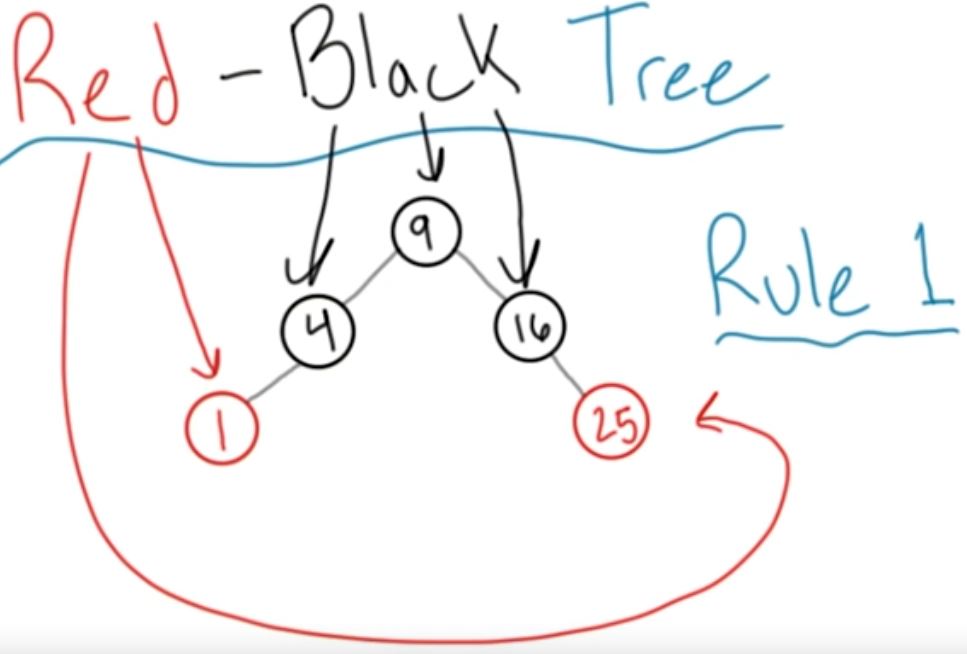 Red - Black Tree
9
Rule 1
4
16
1
25